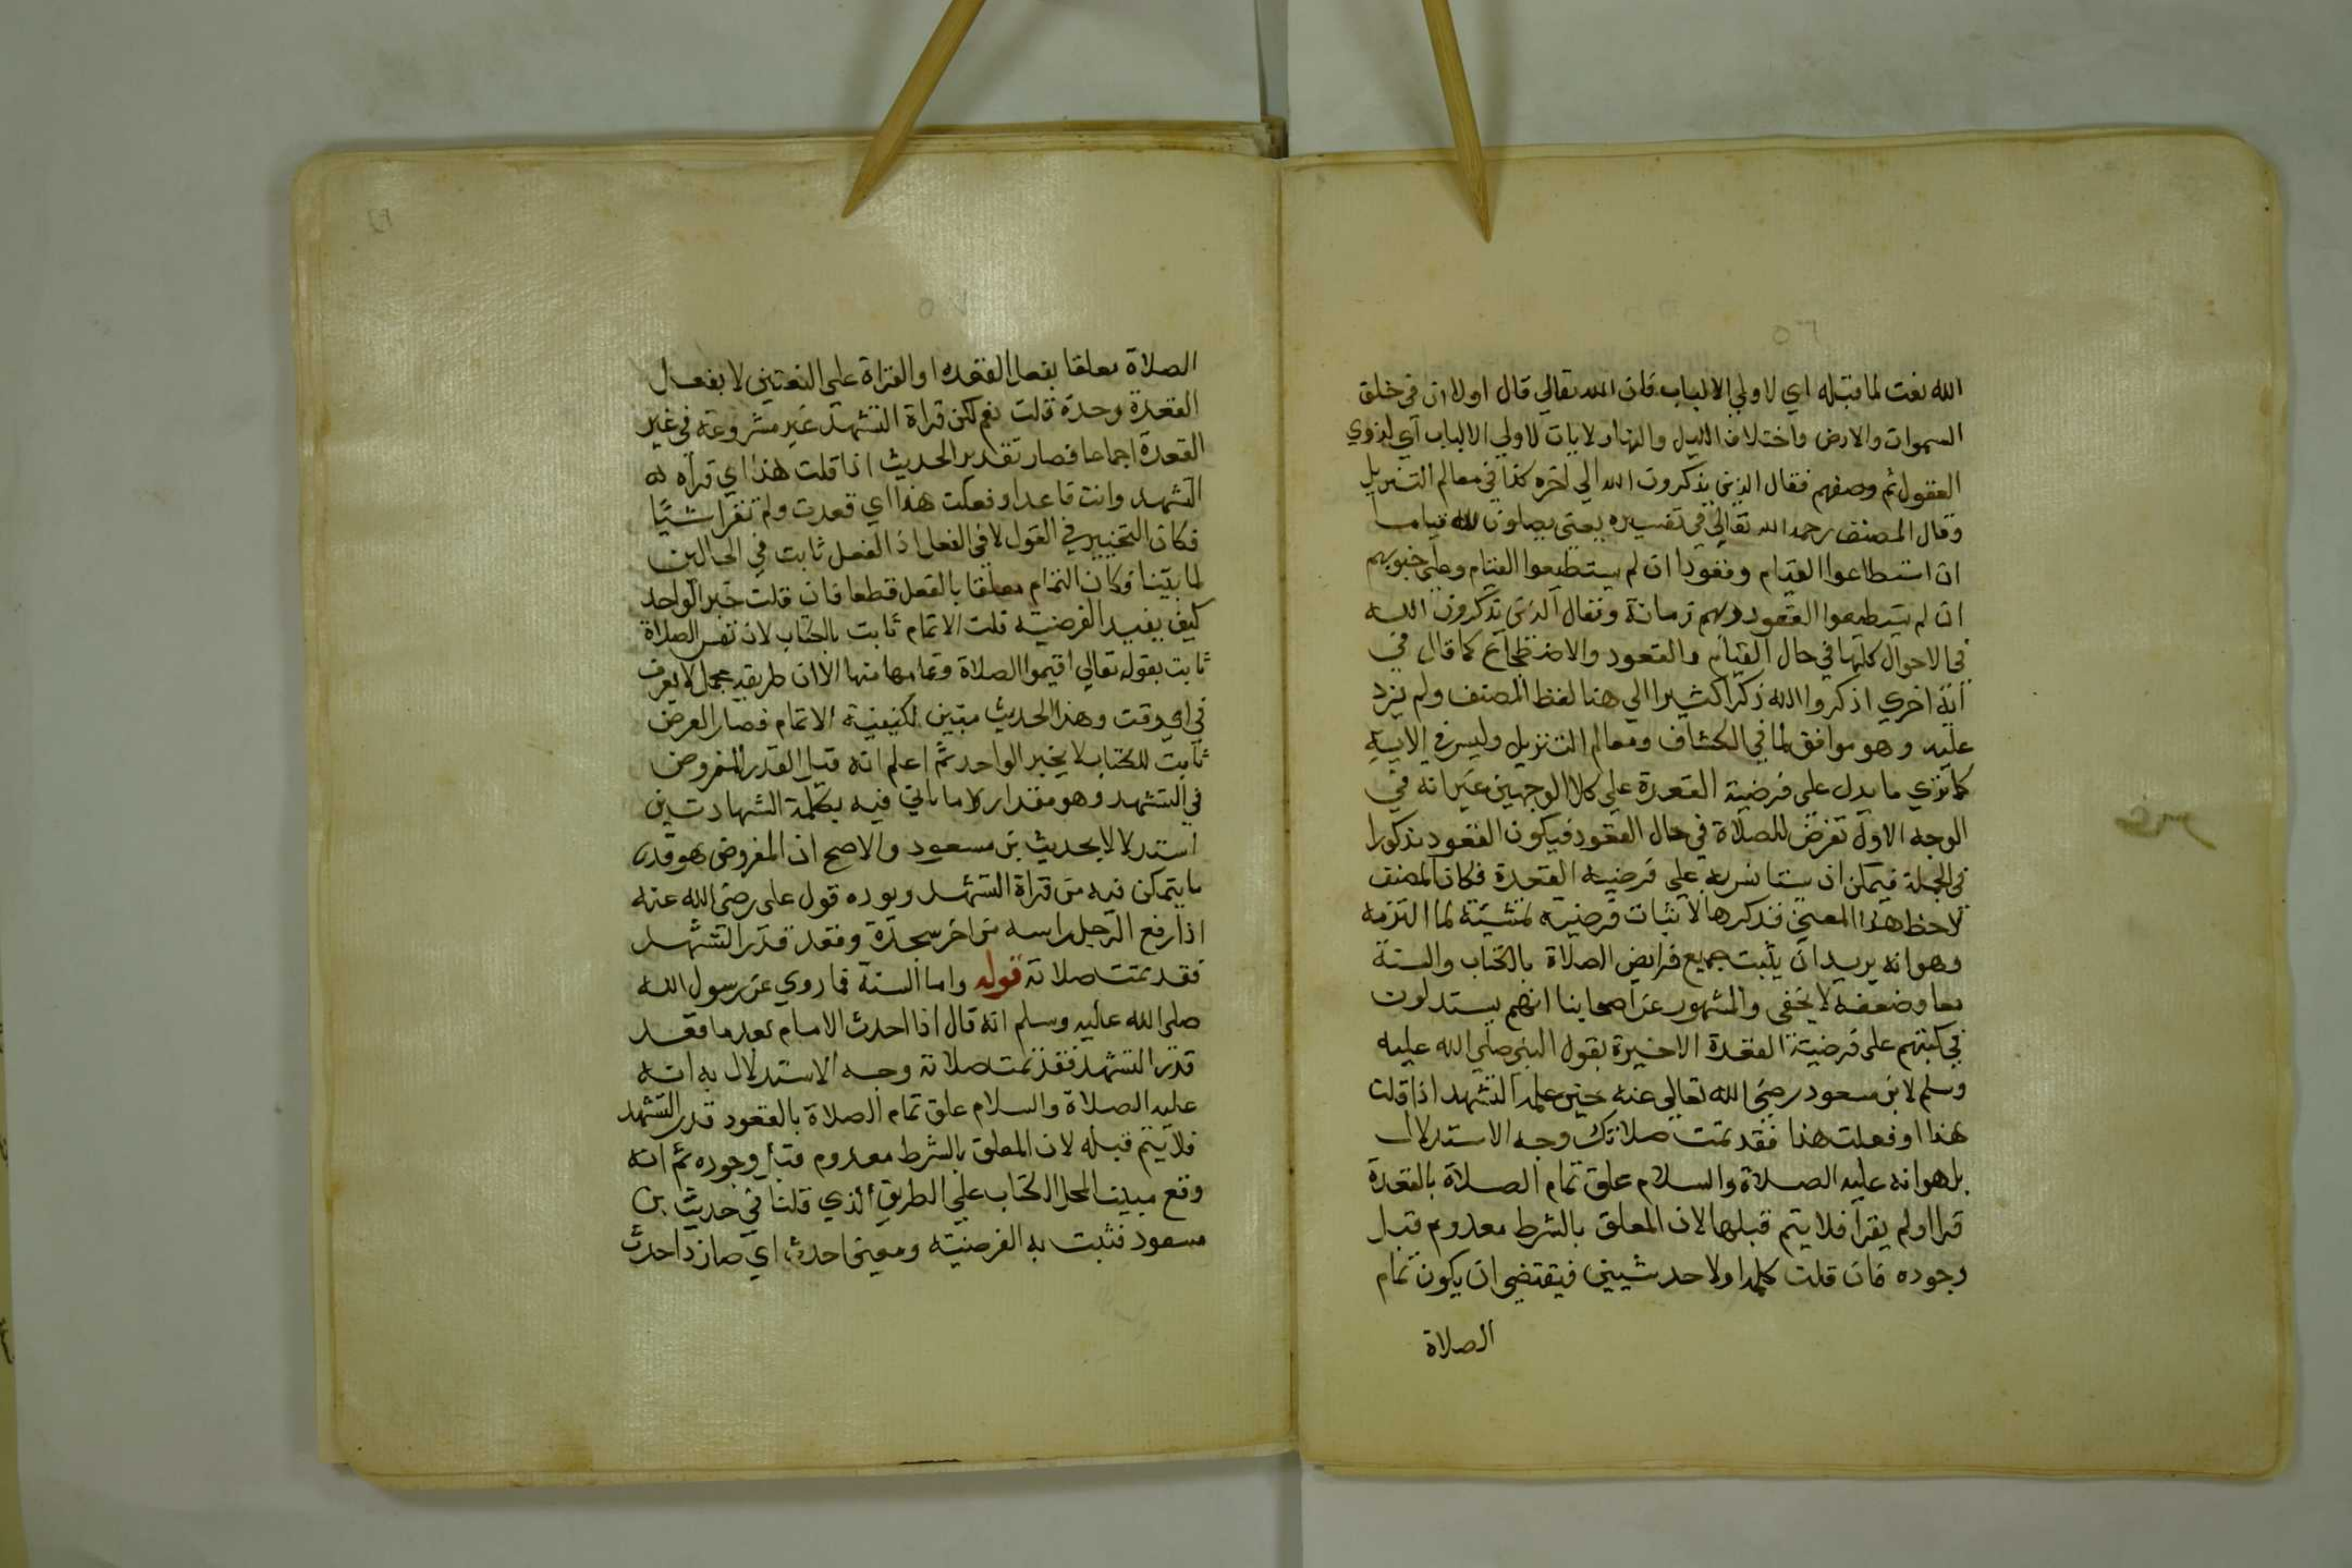 الله نعت لما قبله اي لاولي الالباب فان الله تعالي قال اولا ان في خلق
السموات والارض واختلاف الليل والنهار لايات لاولي الالباب اي لذوي
العقول ثم وصفهم فقال الذين يذكرون الله الي اخره كذا في معالم التنزيل
وقال المصنف رحمه الله تعالي في تفسيره يعني يصلون لله قياما
ان استطاعوا القيام وقعودا ان لم يستطيعوا القيام وعلي جنوبهم
ان لم يستطيعوا القعود ولهم زمانة ويقال الذين يذكرون الله
في الاحوال كلها في حال القيام والقعود والاضطجاع كما قال في
آية اخري اذكروا الله ذكرا كثيرا الي هنا لفظ المصنف ولم يزد
عليه وهو موافق لما في الكشاف ومعالم التنزيل وليس في الاية
كما تري ما يدل علي فرضية القعدة علي كلا الوجهين غير انه في
الوجه الاول تعرض للصلاة في حال القعود فيكون القعود مذكورا
في الجملة فيمكن ان يستانس به علي فرضية القعدة فكان المصنف
لاحظ هذا المعني فذكرها لاثبات فرضيته تمشية لما التزمه
وهو انه يريد ان يثبت جميع فرايض الصلاة بالكتاب والسنة
معا وضعفه لا يخفي والمشهور عن اصحابنا انهم يستدلون
في كتبهم علي فرضية القعدة الاخيرة بقول النبي صلي الله عليه
وسلم لابن مسعود رضي الله تعالي عنه حين علمه التشهد اذا قلت
هذا او فعلت هذا فقد تمت صلاتك وجه الاستدلال
به هو انه عليه الصلاة والسلام علق تمام الصلاة بالقعدة
قرا او لم يقرا فلا يتم قبلها لان المعلق بالشرط معدوم قبل
وجوده فان قلت كلمة او لاحد شيين فيقتضي ان يكون تمام
الصلاة
الصلاة معلقا بفعل القعدة او القراة علي التعيين لا بفعل
القعدة وحدة قلت نعم لكن قراة التشهد غير مشروعة في غير
القعدة اجماعا فصار تقدير الحديث اذا قلت هذا اي قراه
التشهد وانت قاعد او فعلت هذا اي قعدت ولم تقرا شيا
فكان التخيير في القول لا في الفعل اذ الفعل ثابت في الحالين
لما بينا وكان التمام معلقا بالفعل قطعا فان قلت خبر الواحد
كيف يفيد الفرضية قلت الاتمام ثابت بالكتاب لان نفس الصلاة
ثابت بقوله تعالي اقيموا الصلاة وتمامها منها الا ان طريقه مجمل لا يعرف
في اي وقت وهذا الحديث مبين لكيفية الاتمام فصار الفرض
ثابت للكتاب لا بخبر الواحد ثم اعلم انه قيل القدر المفروض
في التشهد وهو مقدار ما ياتي فيه بكلمة الشهادتين
استدلالا بحديث بن مسعود والاصح ان المفروض هو قدر
ما يتمكن فيه من قراة التشهد ويوده قول علي رضي الله عنه
اذا رفع الرجل راسه من اخر سجدة وقعد قدر التشهد
فقد تمت صلاته قوله واما السنة فما روي عن رسول الله
صلي الله عليه وسلم انه قال اذا احدث الامام بعد ما قعد
قدر التشهد فقد تمت صلاته وجه الاستدلال به انه
عليه الصلاة والسلام علق تمام الصلاة بالقعود قدر التشهد
فلا يتم قبله لان المعلق بالشرط معدوم قبل وجوده ثم انه
وقع مبينا لمجمل الكتاب علي الطريق الذي قلنا في حديث بن
مسعود فثبت به الفرضية ومعني احدث اي صار ذا حدث